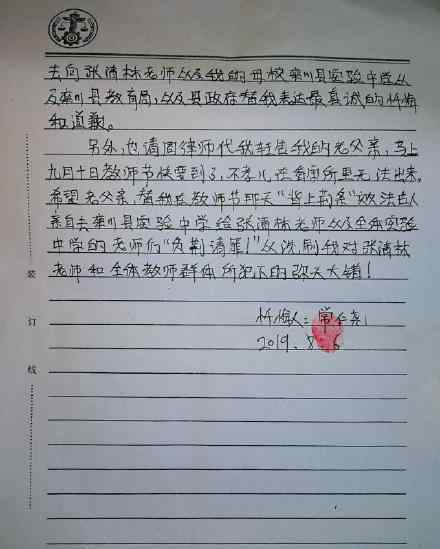 去向张清林老师以及我的母校栾川县实验中学以
及栾川县教育局,以及县政府替我表达最真诚的忏悔
和道歉。
另外,也请周律师代我转告我的老父亲,马上
九月十日教师节快要到了,不孝儿在看守所里无法出来。
希望老父亲,替我在教师节那天"背上荆条"效法古人
亲自去栾川县实验中学给张清林老师以及全体实验
中学的老师们"负荆请罪!"以洗刷我对张清林
老师和全体教师群体所犯下的弥天大错!
忏悔人:常仁尧
2019. 8. 6
装
订
线